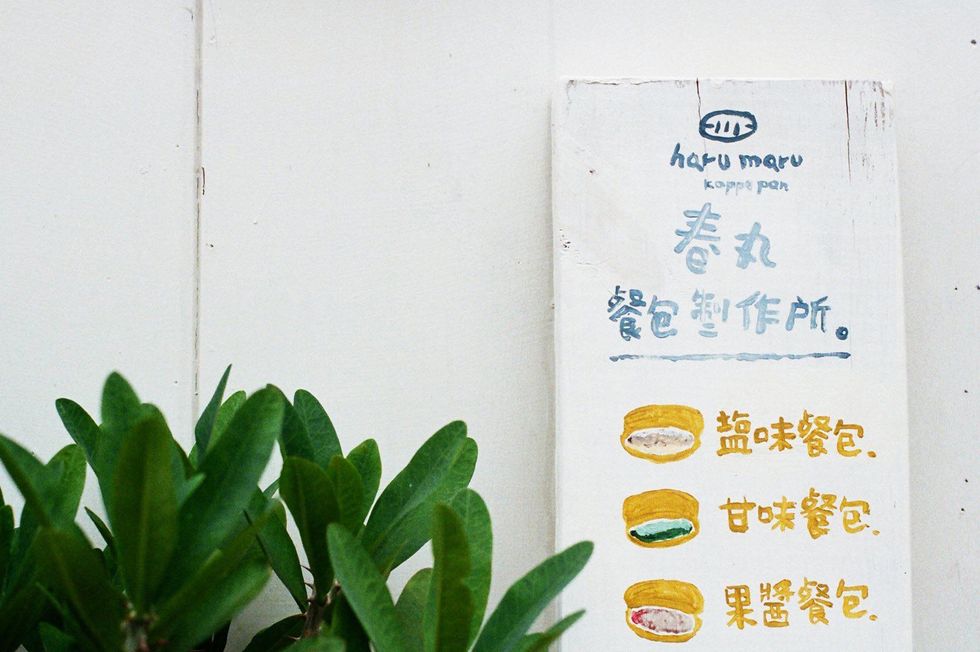 haru maru
koppe pan
春丸
餐包製作所。
塩味餐包.
甘味餐包.
果醬餐包.